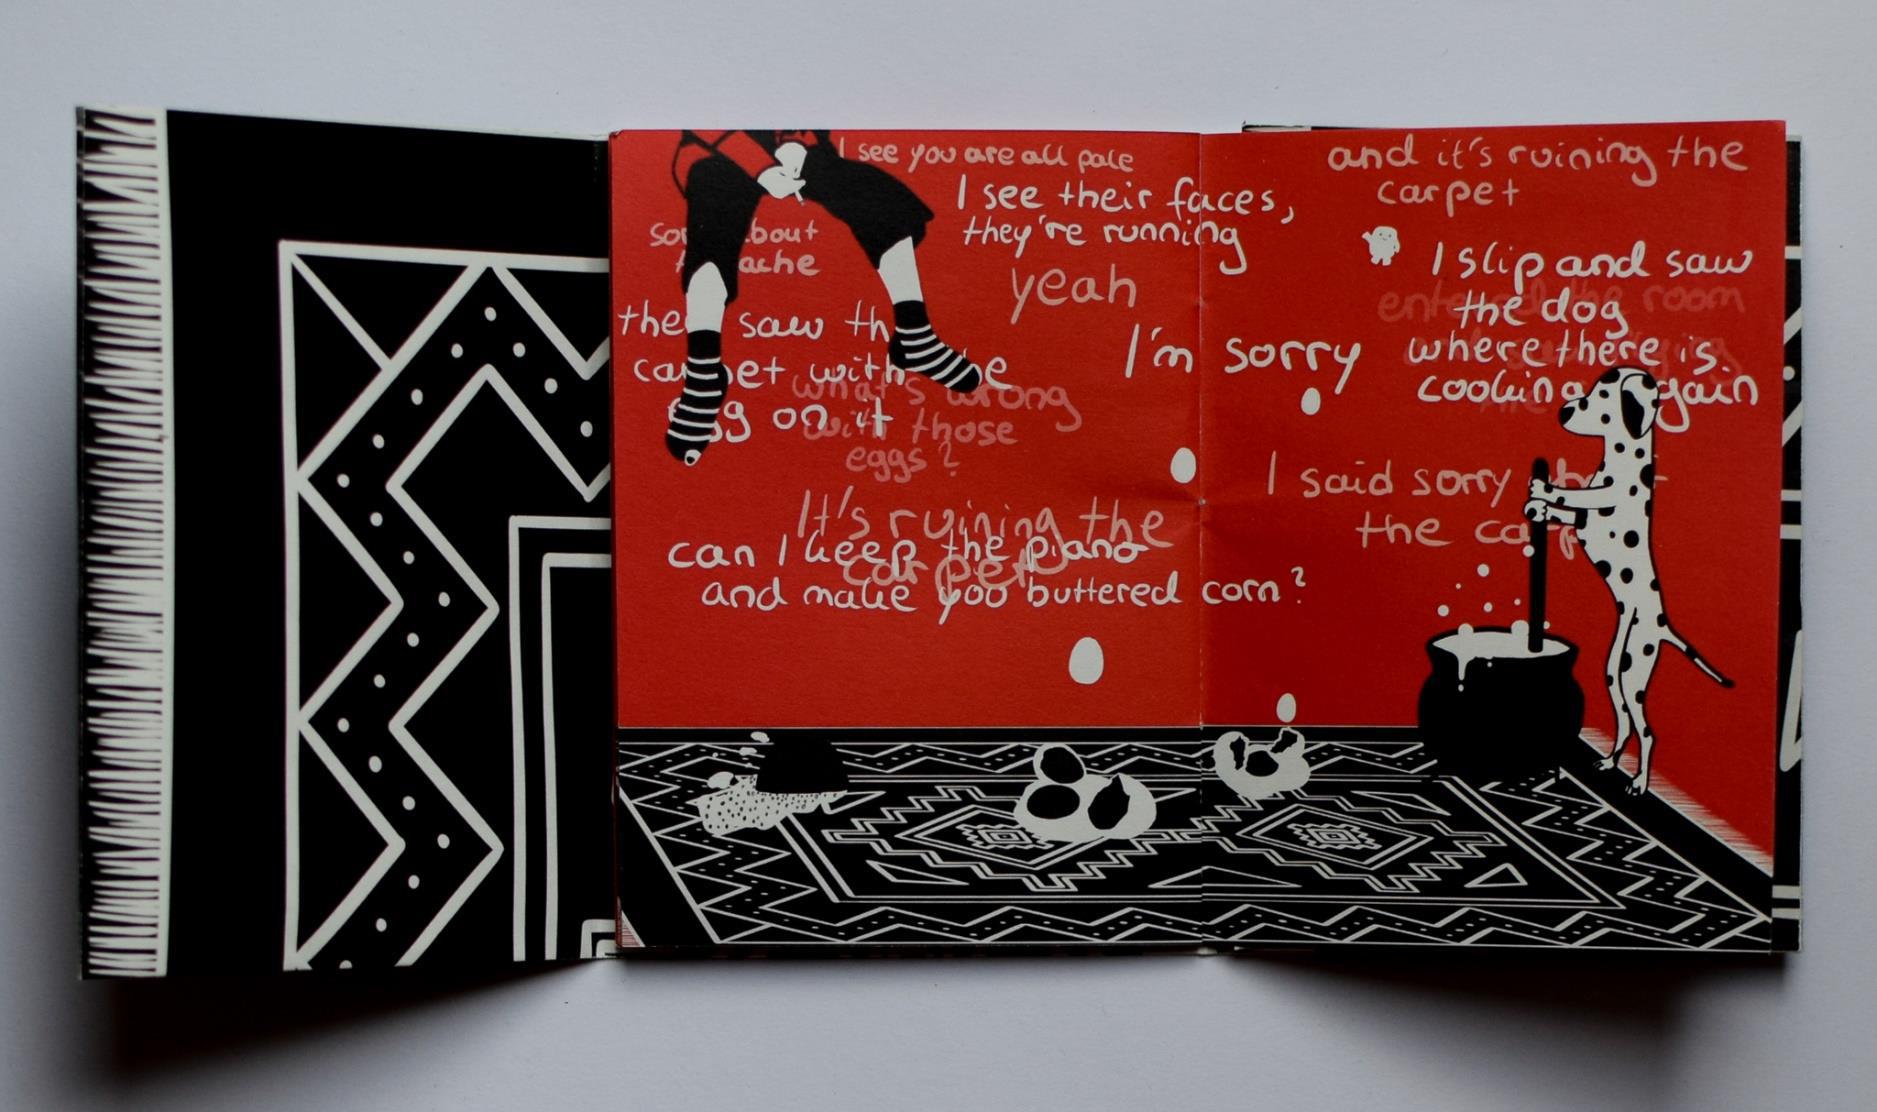 I see you are all pale
I see their faces,
they're running
yeah
bout
ache
saw
with
on it
what's wrong
with those
eggs?
I'm sorry
It's ruining the
carpet
can I keep the piano
and make you buttered corn?
and it's ruining the
carpet
I slip and saw
the dog
where there is
cooking
entered the room
I said sorry
the